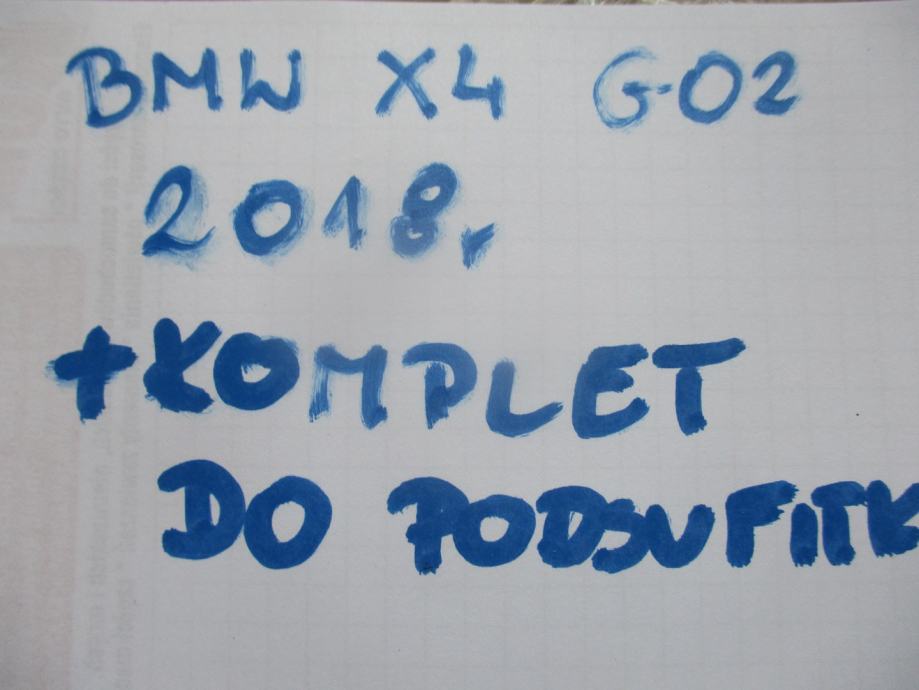 BMW X4 G02
2018r
+KOMPLET
DO PODSUFITK